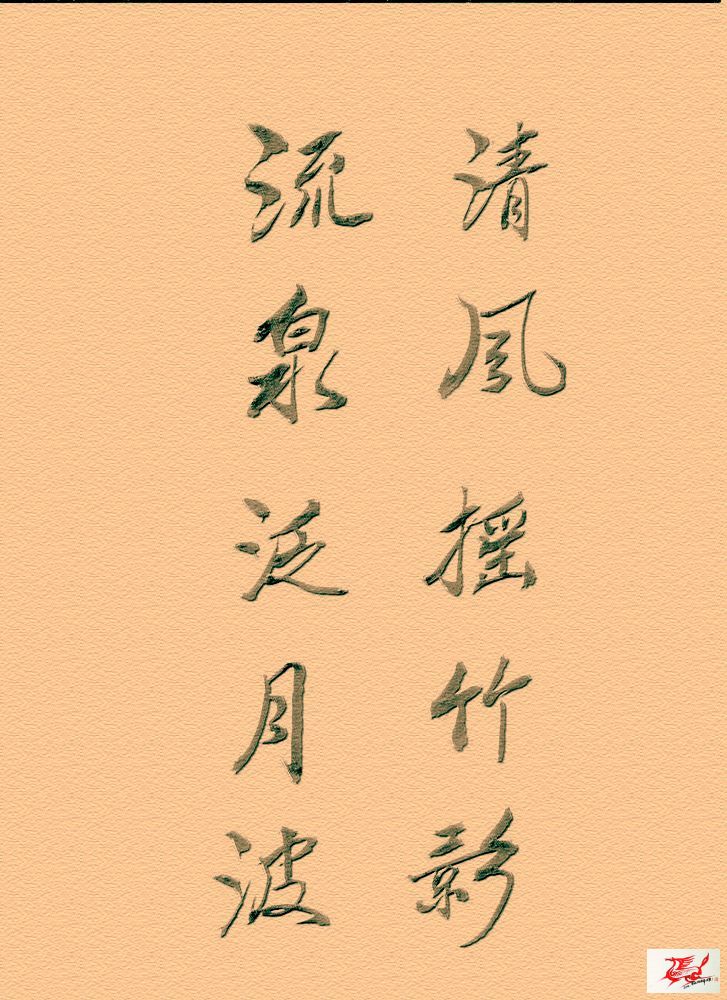 清风摇竹影
流泉泛月波